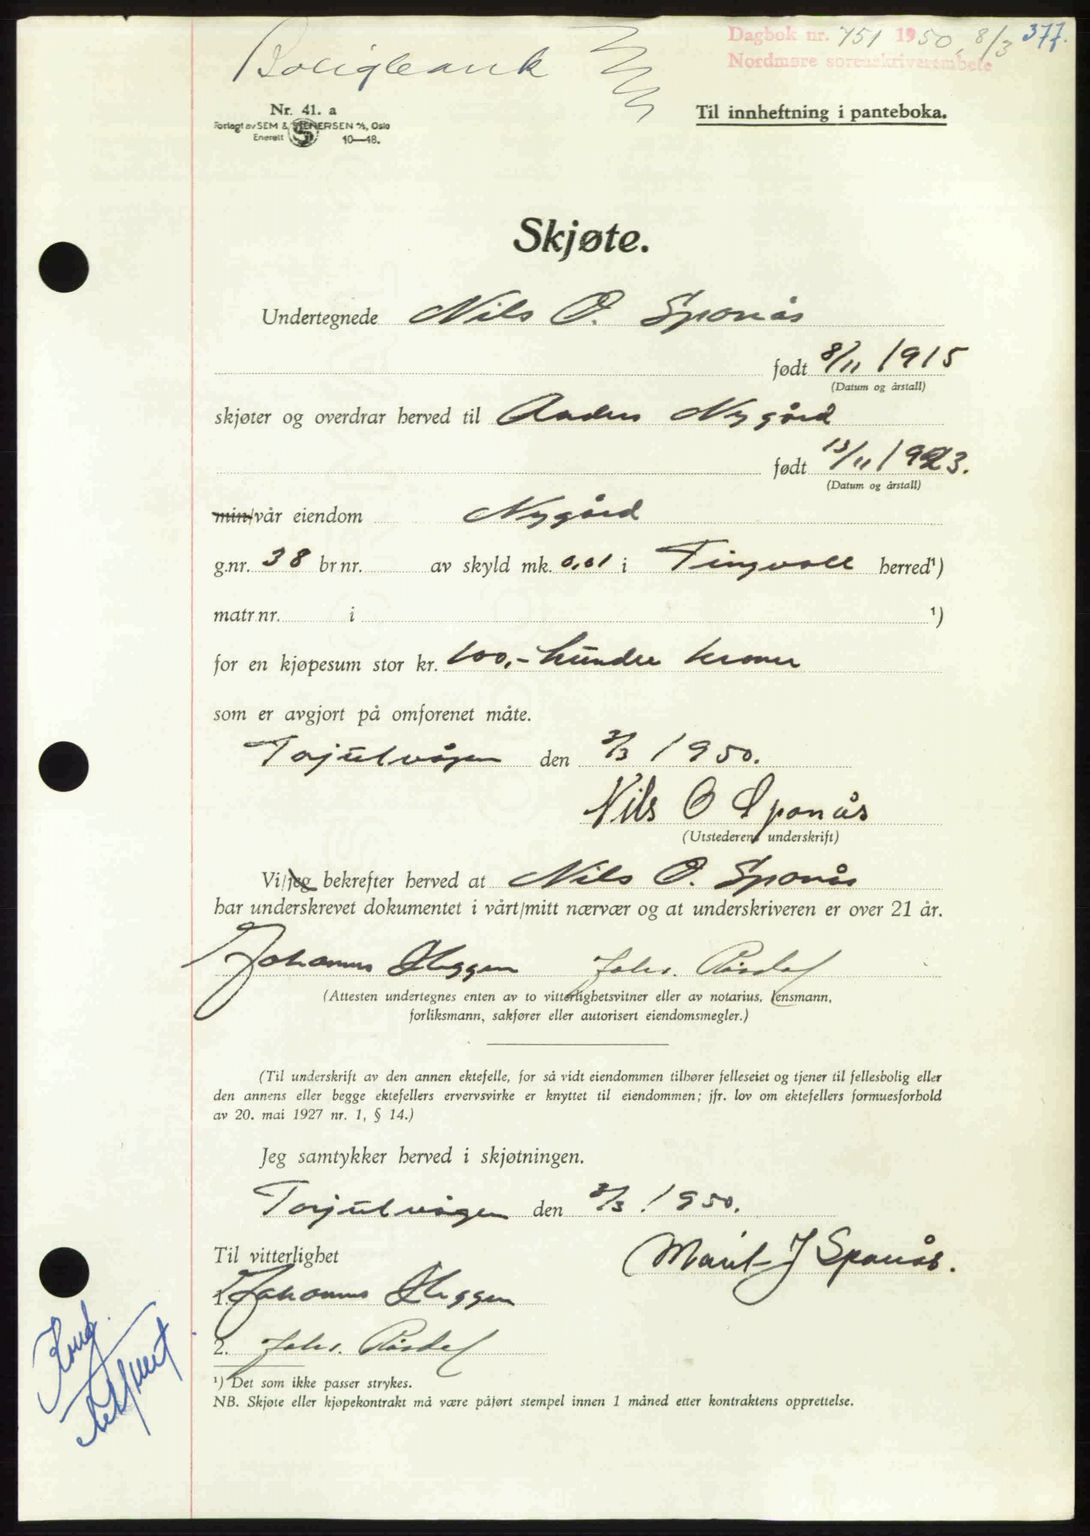 Boligbank
Dagbok nr. 751 1950, 8/3 377.
Nordmøre sorenskriverembete
Nr. 41. a
Forlagt av SEM & STENERSEN A/S, Oslo
Enerett 10—48.
Til innheftning i panteboka.
Skjøte.
Undertegnede Nils O. Sponås
født 8/11 1915
(Datum og årstall)
skjøter og overdrar herved til Anders Nygård
født 13/11 1923.
(Datum og årstall)
min/vår eiendom Nygård
g.nr. 38 br.nr. av skyld mk. 0,01 i Tingvoll herred¹)
matr.nr. i ¹)
for en kjøpesum stor kr. 100,- hundre kroner
som er avgjort på omforenet måte.
Torjulvågen den 3/3 1950.
Nils O Sponås
(Utstederens underskrift)
Vi/jeg bekrefter herved at Nils O. Sponås
har underskrevet dokumentet i vårt/mitt nærvær og at underskriveren er over 21 år.
Johannes Heggen Johs. Råsdal
(Attesten undertegnes enten av to vitterlighetsvitner eller av notarius, lensmann,
forliksmann, sakfører eller autorisert eiendomsmegler.)
(Til underskrift av den annen ektefelle, for så vidt eiendommen tilhører felleseiet og tjener til fellesbolig eller
den annens eller begge ektefellers ervervsvirke er knyttet til eiendommen; jfr. lov om ektefellers formuesforhold
av 20. mai 1927 nr. 1, § 14.)
Jeg samtykker herved i skjøtningen.
Torjulvågen den 3/3 1950.
Til vitterlighet
Marit J Sponås.
1. Johannes Heggen
2. Johs. Råsdal
¹) Det som ikke passer strykes.
NB. Skjøte eller kjøpekontrakt må være påført stempel innen 1 måned etter kontraktens opprettelse.